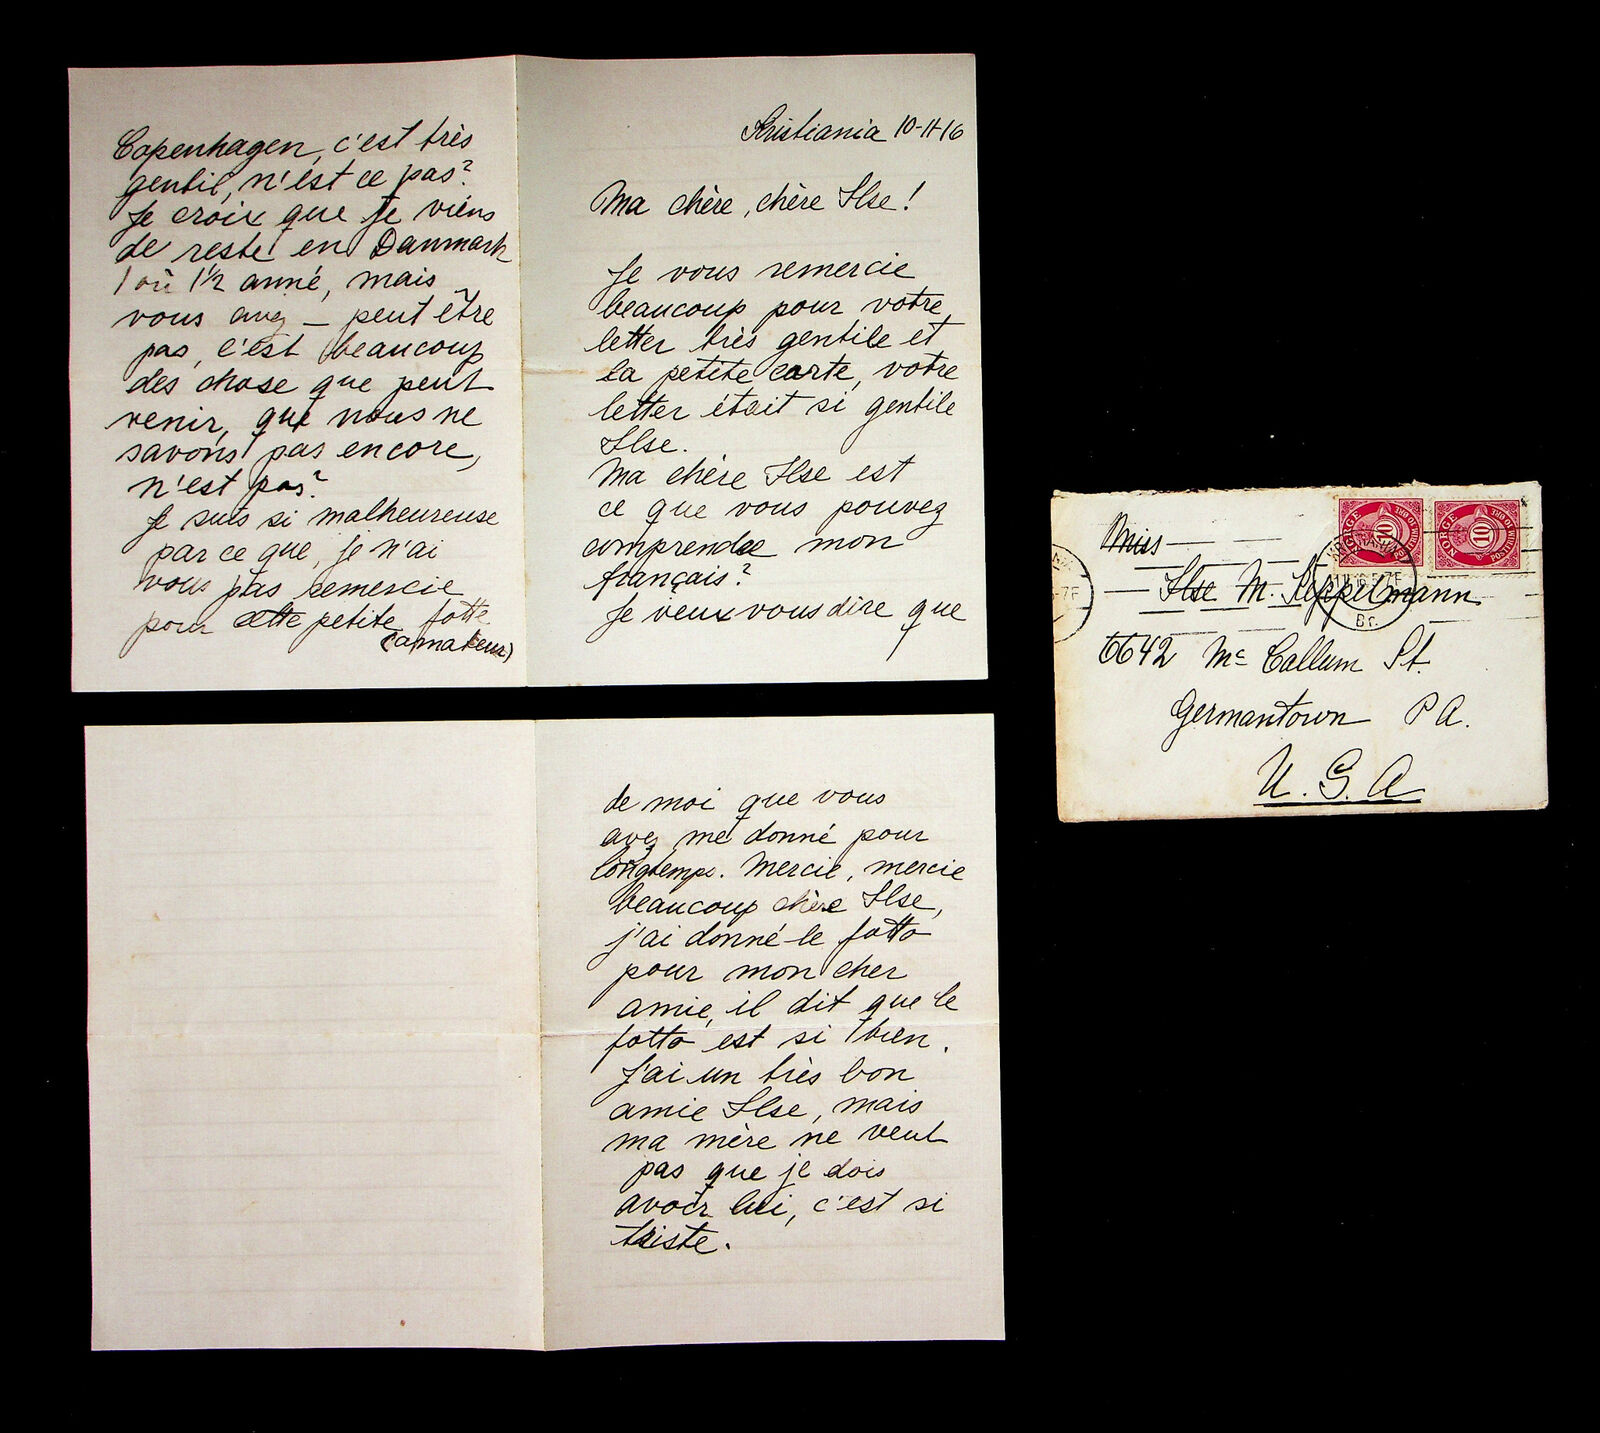 Kristiania 10-11-16
Ma chère, chère Ilse!
Je vous remercie
beaucoup pour votre
letter très gentile et
la petite carte, votre
letter était si gentile
Ilse.
Ma chère Ilse est
ce que vous pouvez
comprendre mon
français?
Je veux vous dire que
Copenhagen, c'est très
gentil, n'est ce pas?
Je croix que je viens
de resté en Danmark
1 où 1½ anné, mais
vous avez – peut être
pas, c'est beaucoup
des chose que peut
venir, que nous ne
savons pas encore,
n'est pas?
Je suis si malheureuse
par ce que, je n'ai
vous pas remercie
pour cette petite fotto
(amateur)
de moi que vous
avez me donné pour
longtemps. Mercie, mercie
beaucoup chère Ilse,
j'ai donné le fotto
pour mon cher
amie, il dit que le
fotto est si bien.
J'ai un très bon
amie Ilse, mais
ma mère ne veut
pas que je dois
avoir lui, c'est si
triste.
NORGE 10
NORGE 10
Br.
Miss
Ilse M. Keppelmann
6642 Mc Callum St.
Germantown PA.
U.S.A